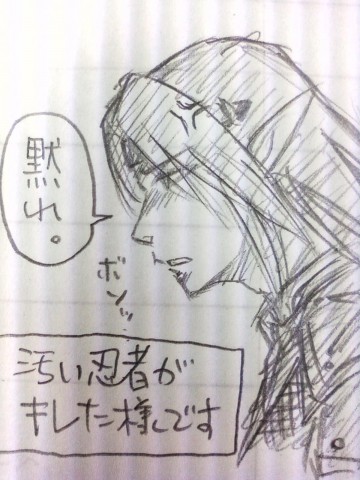 黙れ。
ボソッ…
汚い忍者が
キレた様です